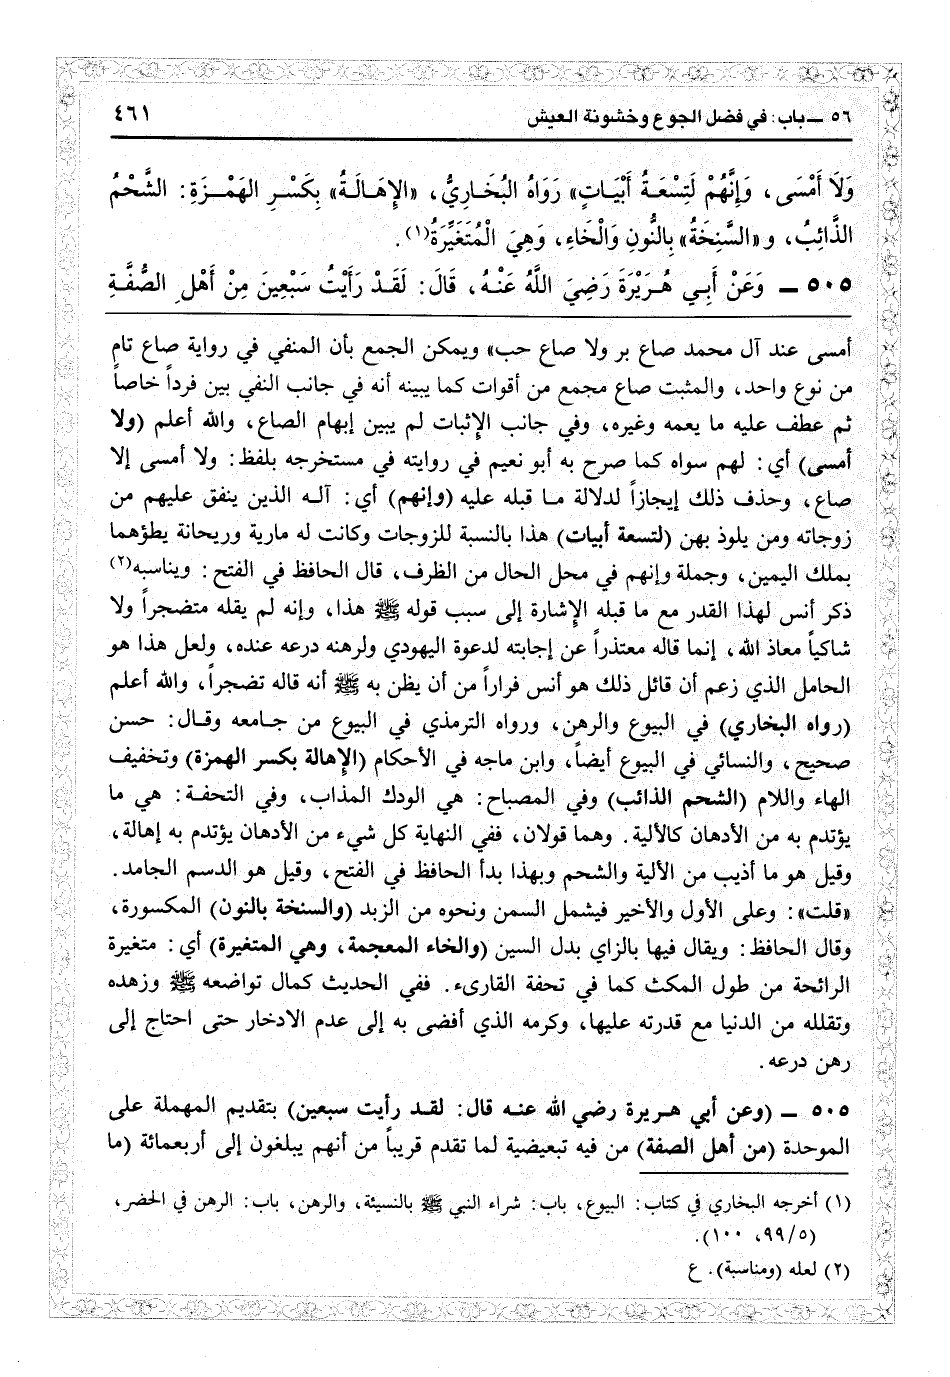 ٥٦ ـ باب: في فضل الجوع وخشونة العيش ٤٦١
وَلَا أَمْسَى، وَإِنَّهُمْ لَتِسْعَةُ أَبْيَاتٍ» رَوَاهُ البُخَارِيُّ، «الإِهَالَةُ» بِكَسْرِ الهَمْزَةِ: الشَّحْمُ
الذَّائِبُ، و«السَّنِخَةُ» بِالنُّونِ وَالْخَاءِ، وَهِيَ الْمُتَغَيِّرَةُ(١).
٥٠٥ ـ وَعَنْ أَبِي هُرَيْرَةَ رَضِيَ اللَّهُ عَنْهُ، قَالَ: لَقَدْ رَأَيْتُ سَبْعِينَ مِنْ أَهْلِ الصُّفَّةِ
أمسى عند آل محمد صاع بر ولا صاع حب» ويمكن الجمع بأن المنفي في رواية صاع تام
من نوع واحد، والمثبت صاع مجمع من أقوات كما يبينه أنه في جانب النفي بين فرداً خاصاً
ثم عطف عليه ما يعمه وغيره، وفي جانب الإثبات لم يبين إبهام الصاع، والله أعلم (ولا
أمسى) أي: لهم سواه كما صرح به أبو نعيم في روايته في مستخرجه بلفظ: ولا أمسى إلا
صاع، وحذف ذلك إيجازاً لدلالة ما قبله عليه (وإنهم) أي: آله الذين ينفق عليهم من
زوجاته ومن يلوذ بهن (لتسعة أبيات) هذا بالنسبة للزوجات وكانت له مارية وريحانة يطؤهما
بملك اليمين، وجملة وإنهم في محل الحال من الظرف، قال الحافظ في الفتح: ويناسبه(٢)
ذكر أنس لهذا القدر مع ما قبله الإشارة إلى سبب قوله ﷺ هذا، وإنه لم يقله متضجراً ولا
شاكياً معاذ الله، إنما قاله معتذراً عن إجابته لدعوة اليهودي ولرهنه درعه عنده، ولعل هذا هو
الحامل الذي زعم أن قائل ذلك هو أنس فراراً من أن يظن به ﷺ أنه قاله تضجراً، والله أعلم
(رواه البخاري) في البيوع والرهن، ورواه الترمذي في البيوع من جامعه وقال: حسن
صحيح، والنسائي في البيوع أيضاً، وابن ماجه في الأحكام (الإهالة بكسر الهمزة) وتخفيف
الهاء واللام (الشحم الذائب) وفي المصباح: هي الودك المذاب، وفي التحفة: هي ما
يؤتدم به من الأدهان كالألية. وهما قولان، ففي النهاية كل شيء من الأدهان يؤتدم به إهالة،
وقيل هو ما أذيب من الألية والشحم وبهذا بدأ الحافظ في الفتح، وقيل هو الدسم الجامد.
«قلت»: وعلى الأول والأخير فيشمل السمن ونحوه من الزبد (والسنخة بالنون) المكسورة،
وقال الحافظ: ويقال فيها بالزاي بدل السين (والخاء المعجمة، وهي المتغيرة) أي: متغيرة
الرائحة من طول المكث كما في تحفة القارىء. ففي الحديث كمال تواضعه ﷺ وزهده
وتقلله من الدنيا مع قدرته عليها، وكرمه الذي أفضى به إلى عدم الادخار حتى احتاج إلى
رهن درعه.
٥٠٥ ـ (وعن أبي هريرة رضي الله عنه قال: لقد رأيت سبعين) بتقديم المهملة على
الموحدة (من أهل الصفة) من فيه تبعيضية لما تقدم قريباً من أنهم يبلغون إلى أربعمائة (ما
(١) أخرجه البخاري في كتاب: البيوع، باب: شراء النبي ﷺ بالنسيئة، والرهن، باب: الرهن في الحضر،
(٥/ ٩٩، ١٠٠).
(٢) لعله (ومناسبة). ع